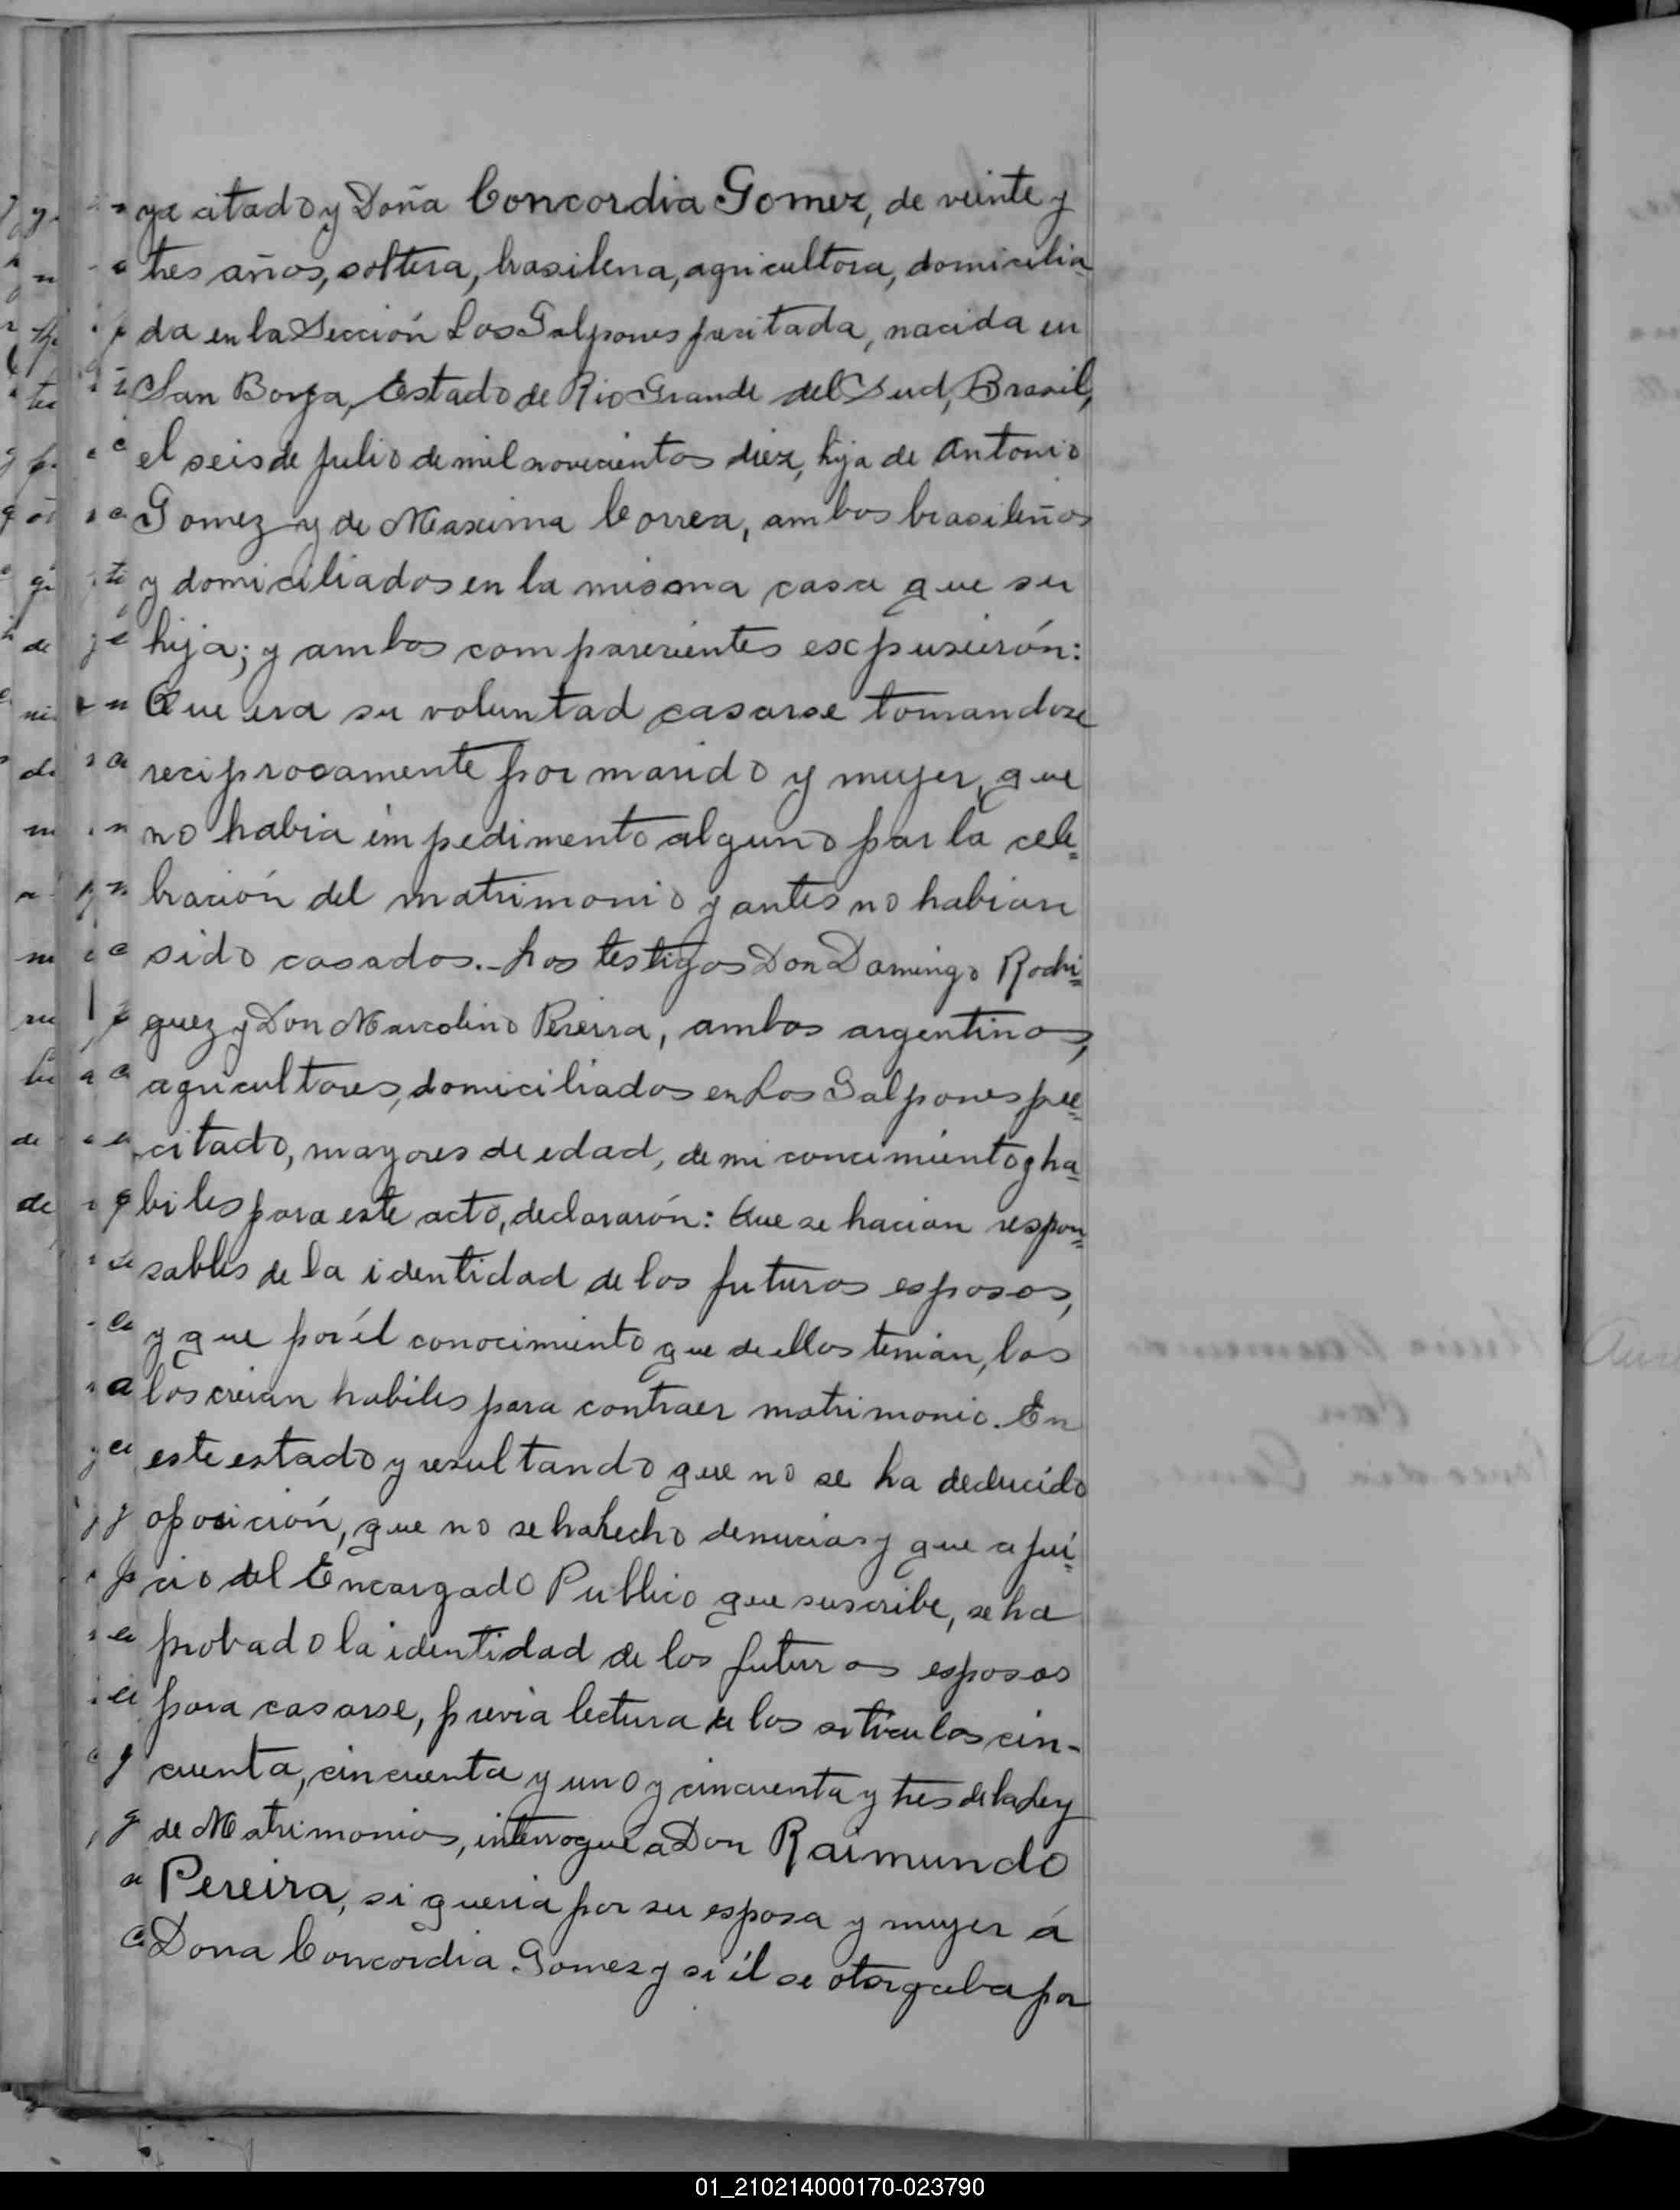 ya citado y Doña Concordia Gomez, de veinte y
tres años, soltera, brasilena, agricultora, domicilia-
da en la Sección Los Galpones precitada, nacida en
San Borja, Estado de Rio Grande del Sud, Brasil,
el seis de julio de mil novecientos diez, hija de Antonio
Gomez y de Maxima Correa, ambos brasileños
y domiciliados en la misma casa que su
hija; y ambos comparecientes expusierón:
Que era su voluntad casarse tomandose
reciprocamente por marido y mujer, que
no habia impedimento alguno par la cele=
bración del matrimonio y antes no habian
sido casados.- Los testigos Don Domingo Rodri=
guez y Don Marcolino Pereira, ambos argentinos,
agricultores, domiciliados en Los Galpones pre=
citado, mayores de edad, de mi concimiento y ha=
biles para este acto, declararón: Que se hacian respon=
sables de la identidad de los futuros esposos,
y que por él conocimiento que de ellos tenian, los
los creian habiles para contraer matrimonio. En
este estado y resultando que no se ha deducido
oposición, que no se ha hecho denucias y que a jui=
cio del Encargado Publico que suscribe, se ha
probado la identidad de los futuros esposos
para casarse, previa lectura de los articulos cin-
cuenta, cincuenta y uno y cincuenta y tres de la Ley
de Matrimonios, interrogué a Don Raimundo
Pereira, si queria por su esposa y mujer á
Dona Concordia Gomez y si él se otorgaba por
01_210214000170-023790